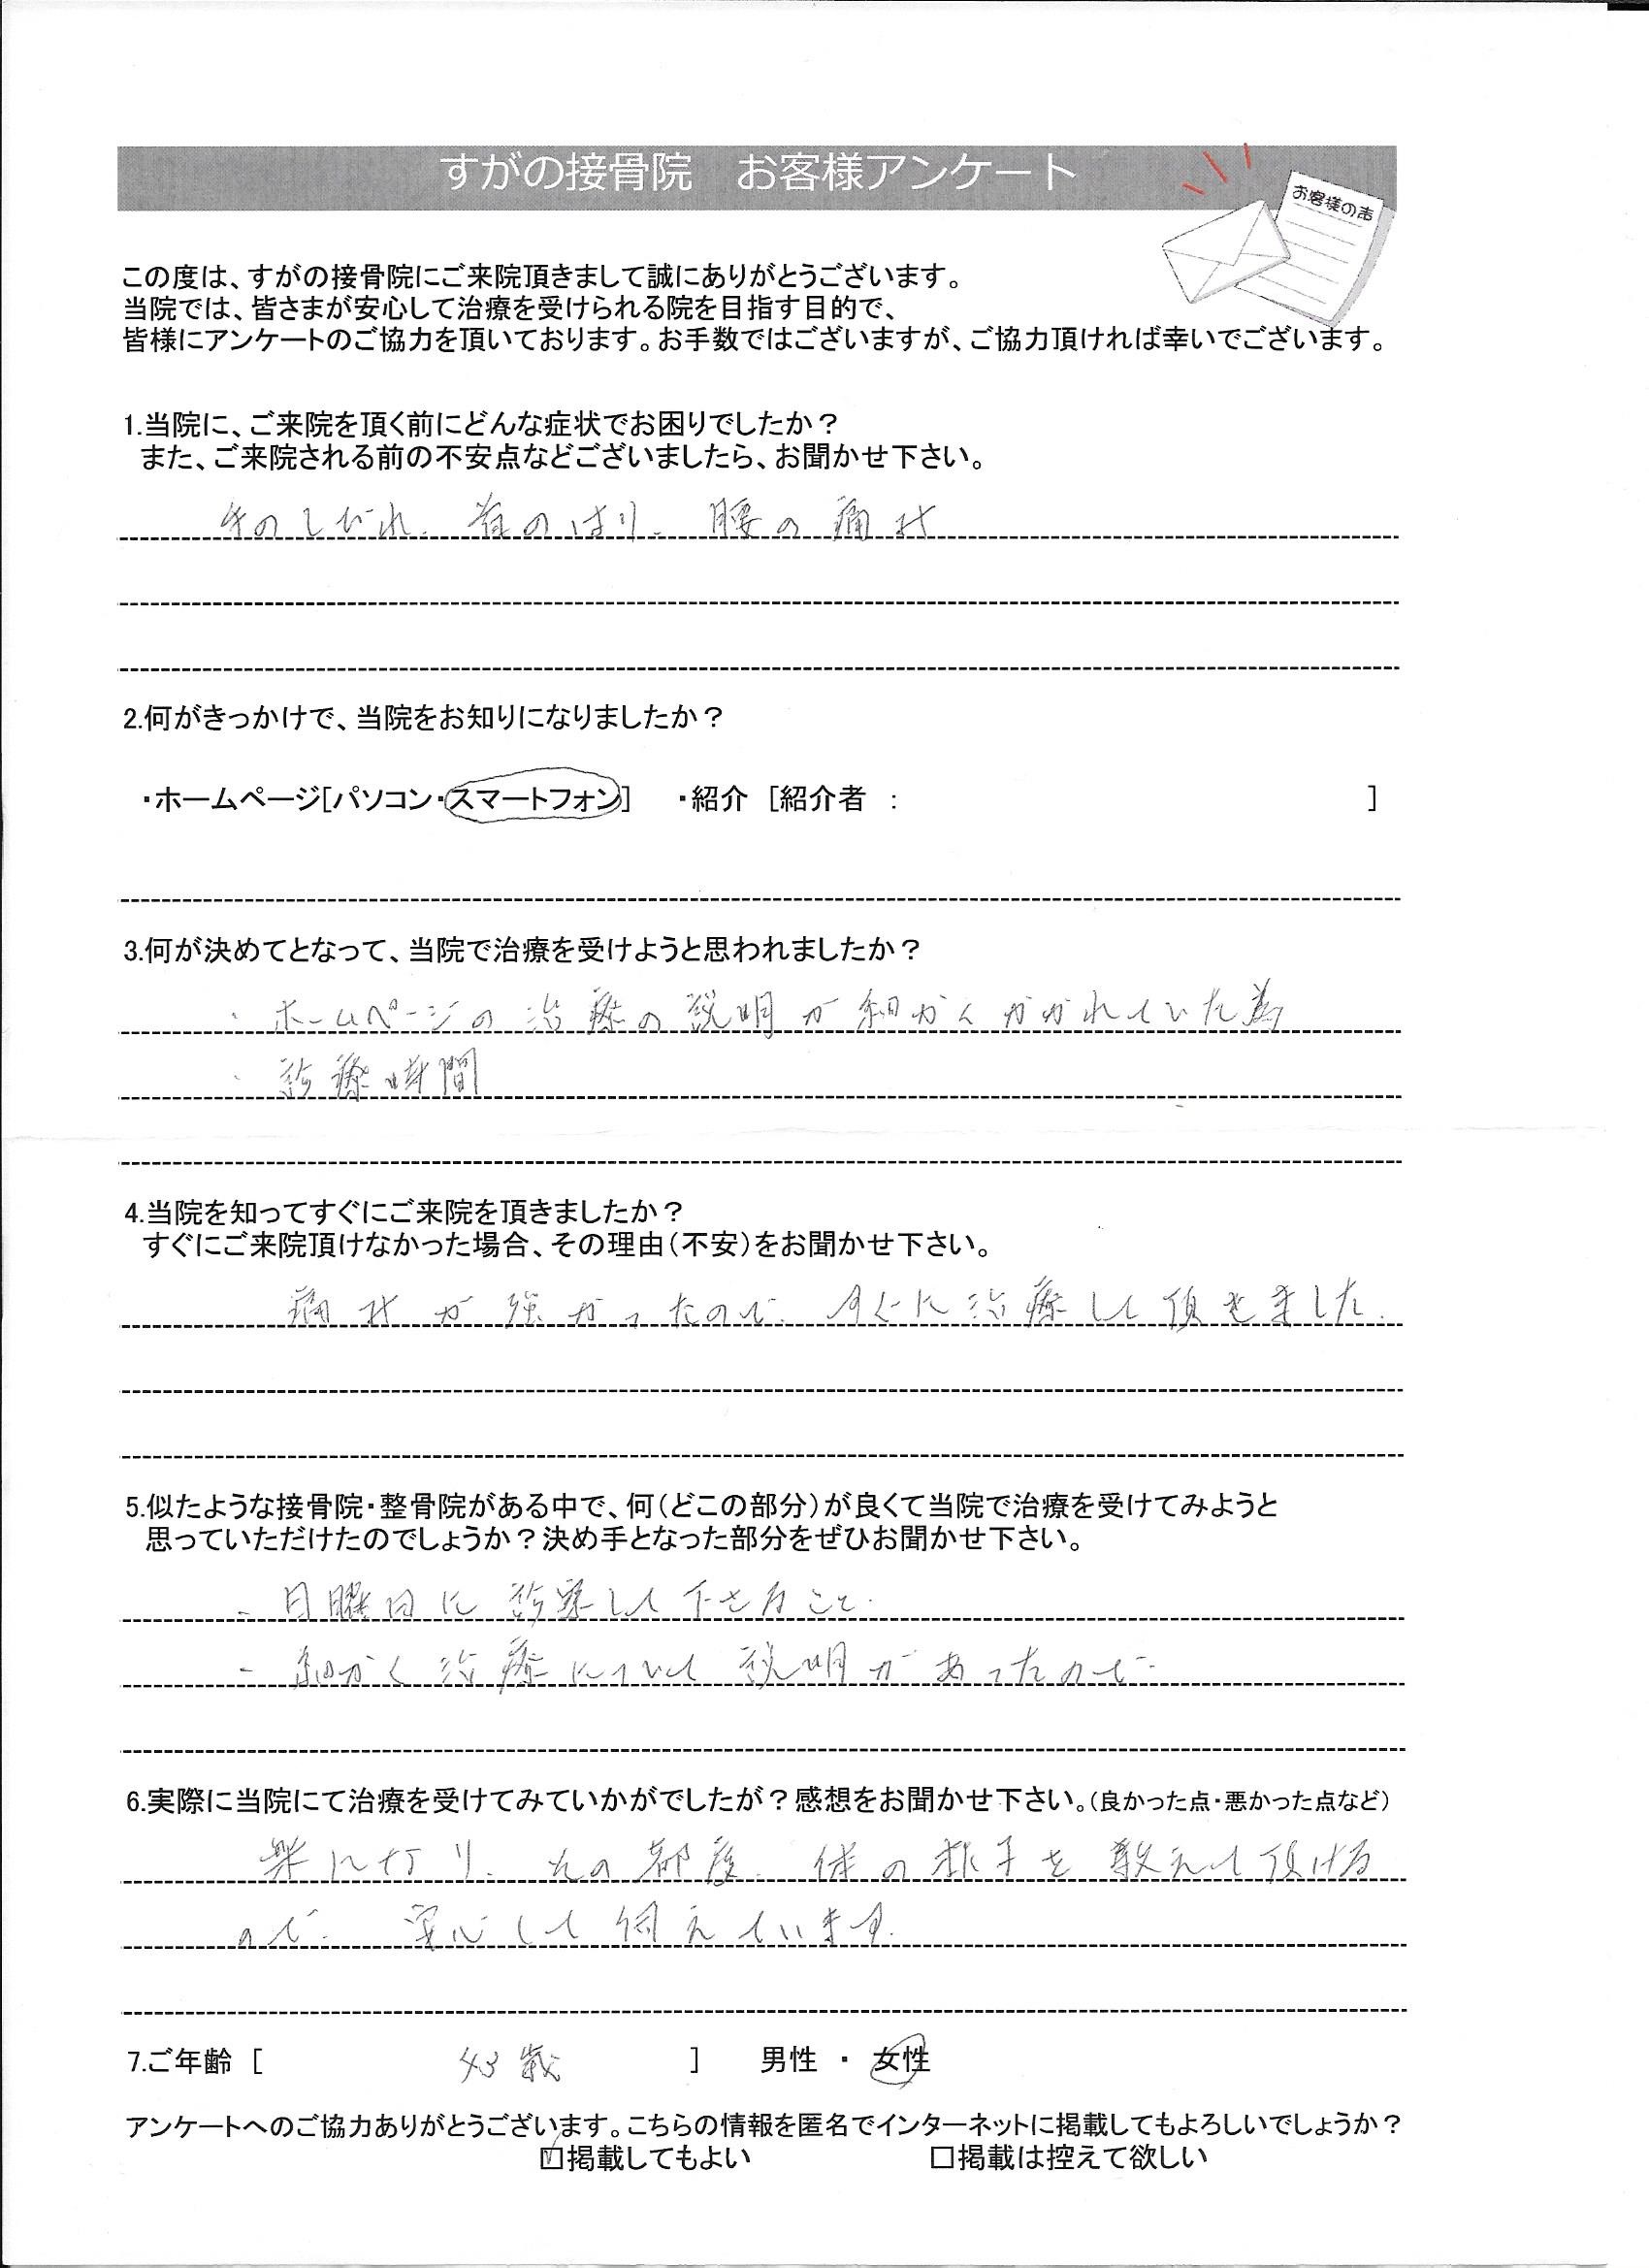 すがの接骨院 お客様アンケート
お客様の声
この度は、すがの接骨院にご来院頂きまして誠にありがとうございます。
当院では、皆さまが安心して治療を受けられる院を目指す目的で、
皆様にアンケートのご協力を頂いております。お手数ではございますが、ご協力頂ければ幸いでございます。
1.当院に、ご来院を頂く前にどんな症状でお困りでしたか？
また、ご来院される前の不安点などございましたら、お聞かせ下さい。
手のしびれ、首のはり、腰の痛み
2.何がきっかけで、当院をお知りになりましたか？
・ホームページ[パソコン・スマートフォン] ・紹介 [紹介者 : ]
3.何が決めてとなって、当院で治療を受けようと思われましたか？
・ホームページの治療の説明が細かくかかれていた為
・診療時間
4.当院を知ってすぐにご来院を頂きましたか？
すぐにご来院頂けなかった場合、その理由（不安）をお聞かせ下さい。
痛みが強かったので、すぐに治療して頂きました。
5.似たような接骨院・整骨院がある中で、何（どこの部分）が良くて当院で治療を受けてみようと
思っていただけたのでしょうか？決め手となった部分をぜひお聞かせ下さい。
・日曜日に診察して下さること。
・細かく治療について説明があったので
6.実際に当院にて治療を受けてみていかがでしたが？感想をお聞かせ下さい。（良かった点・悪かった点など）
楽になり、その都度、体の様子を教えて頂ける
ので、安心して伺えています。
7.ご年齢 [ 43歳 ] 男性 ・ 女性
アンケートへのご協力ありがとうございます。こちらの情報を匿名でインターネットに掲載してもよろしいでしょうか？
☑掲載してもよい □掲載は控えて欲しい